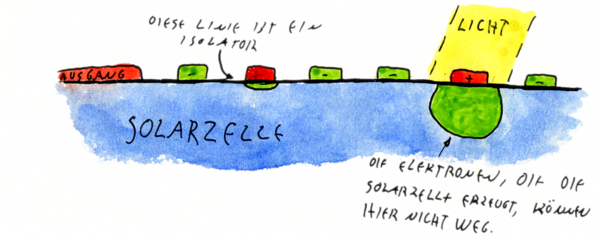 DIESE LINIE IST EIN
ISOLATOR
LICHT
AUSGANG
-
+
-
-
+
-
SOLARZELLE
DIE ELEKTRONEN, DIE DIE
SOLARZELLE ERZEUGT, KÖNNEN
HIER NICHT WEG.